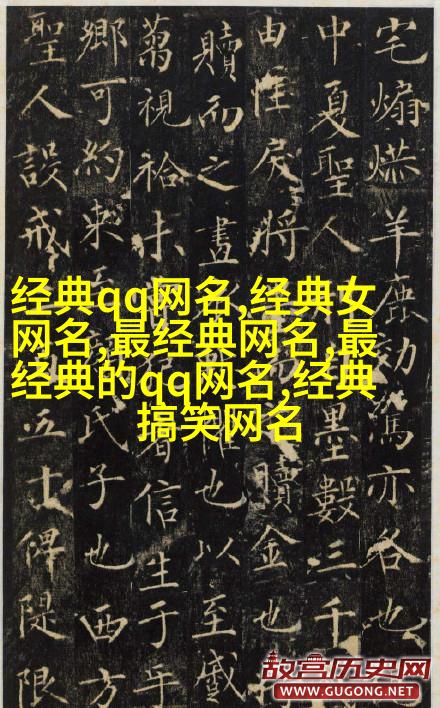 宅煽 羊鹿効 亦各也
中夏聖人 墨數三千
由 將 贖金也
贖而之 也以至戚
視 信生于
鄉可約束 氏子也西方
聖人設戒 五 俾隄限
经典qq网名,经典女
网名,最经典网名,最
经典的qq网名,经典
搞笑网名
故宫历史网
WWW.GUGONG.NET